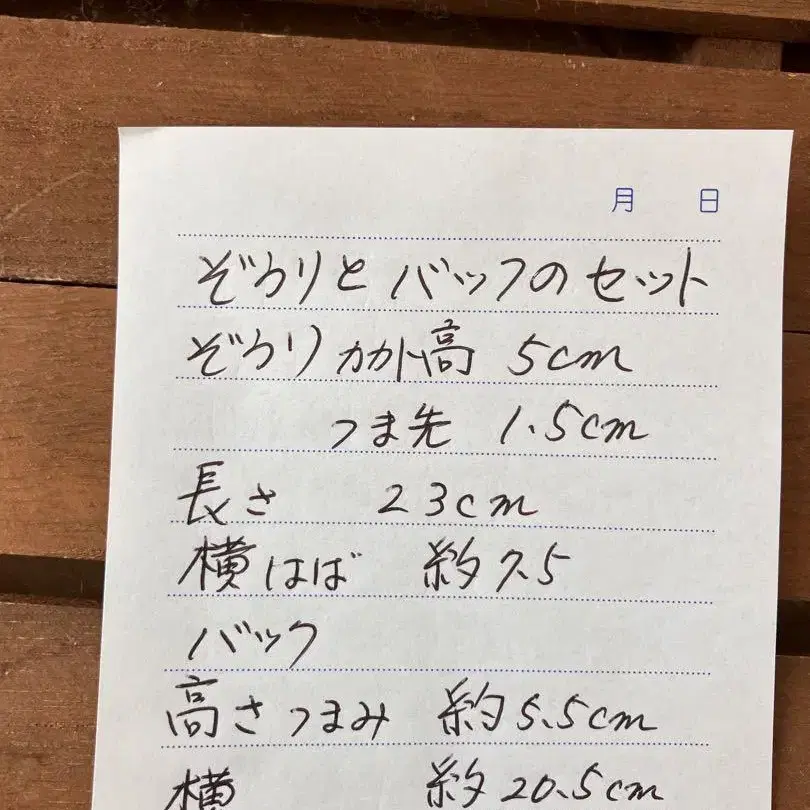 月 日
ぞうりとバックのセット
ぞうりカカト高 5cm
つま先 1.5cm
長さ 23cm
横はば 約7.5
バック
高さつまみ 約5.5cm
横 約20.5cm